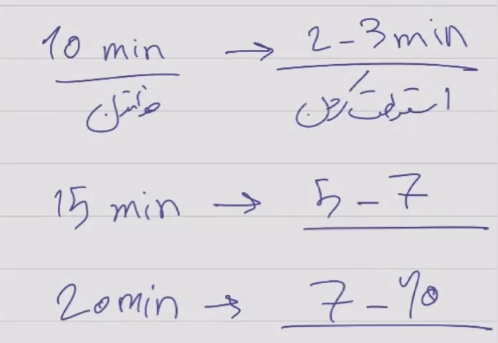 10 min → 2-3 min
خواندن استراحت کردن
15 min → 5-7
20 min → 7-10